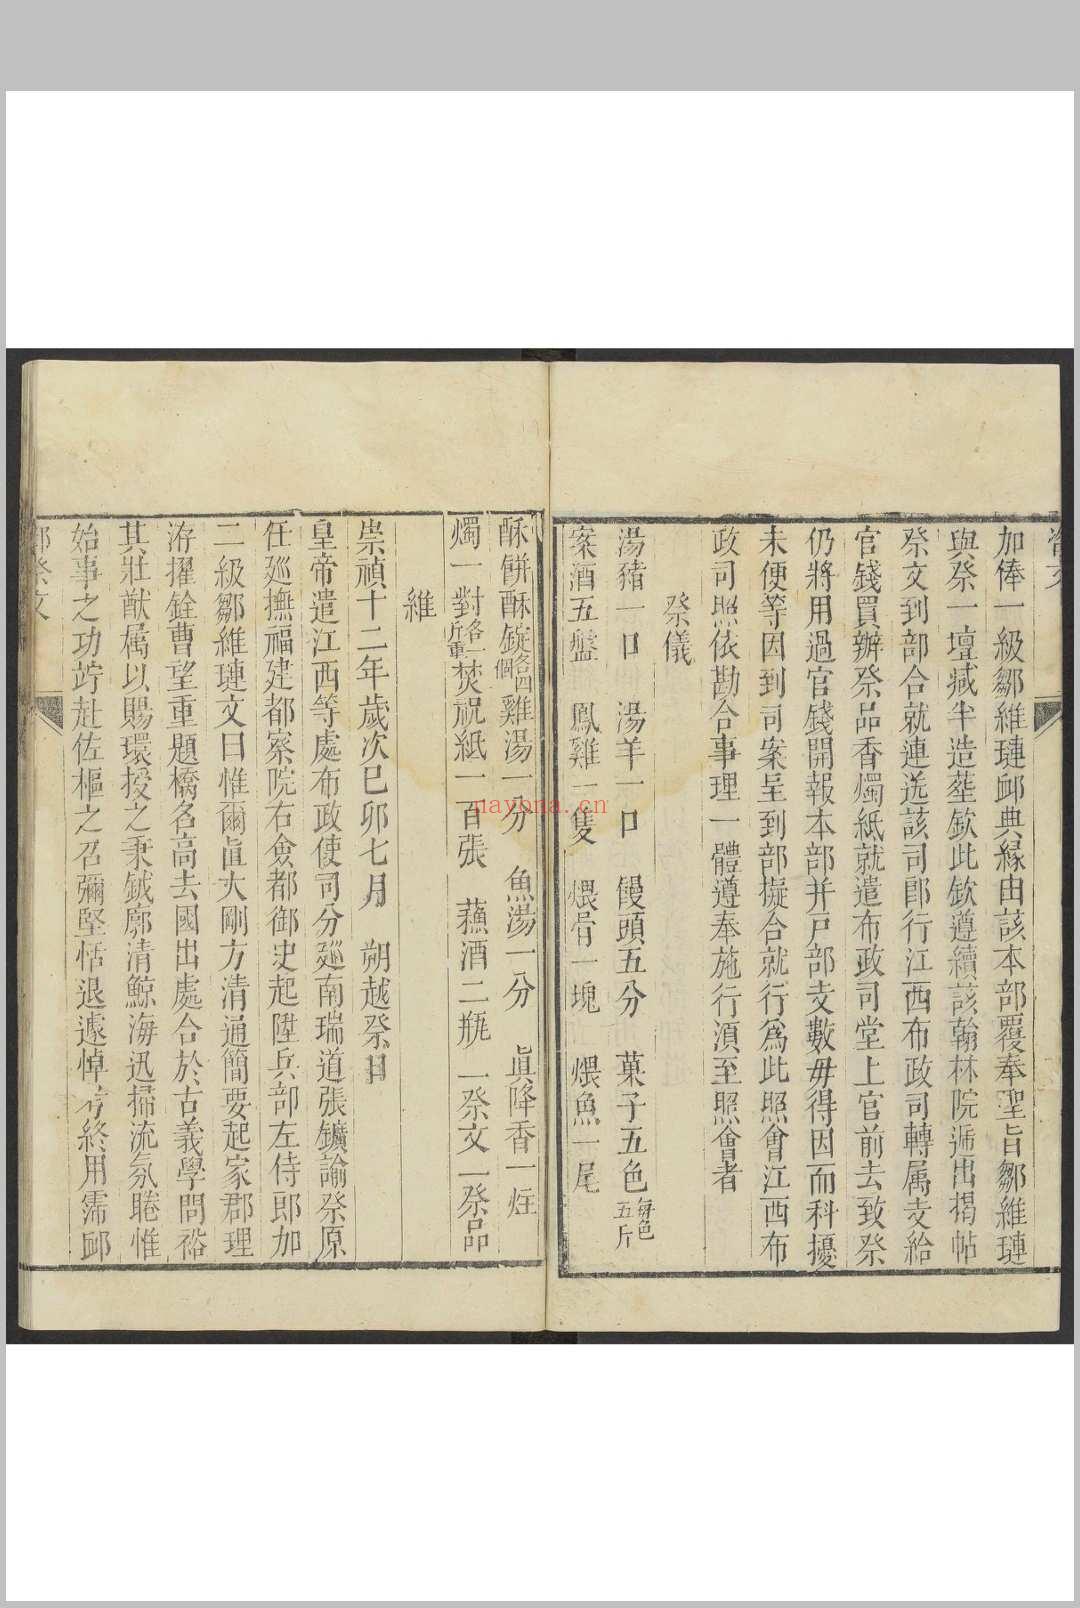 加俸一級鄒維璉邺典緣由該本部覆奉聖旨鄒維璉
與祭一壇减半造塟欽此欽遵續該翰林院遞出揭帖
祭文到部合就連送該司郎行江西布政司轉属支給
官錢買辦祭品香燭紙就遣布政司堂上官前去致祭
仍將用過官錢開報本部并户部支數毋得因而科擾
未便等因到司案呈到部擬合就行爲此照會江西布
政司照依勘合事理一體遵奉施行湏至照會者
祭儀
湯豬一口 湯羊一口 饅頭五分 菓子五色每色五斤
案酒五盤 鳳雞一隻 煨骨一塊 煨魚一尾
酥餅酥錠各四個 雞湯一分 魚湯一分 眞降香一炷
燭一對各一斤重 焚祝紙一百張 蘸酒二瓶 一祭文一祭品
維
崇禎十二年歲次己卯七月 朔越祭日
皇帝遣江西等處布政使司分廵南瑞道張鑛諭祭原
任廵撫福建都察院右僉都御史起陞兵部左侍郎加
二級鄒維璉文曰惟爾直大剛方清通簡要起家郡理
洊擢銓曹望重題橋名高去國出處合於古義學問裕
其壯猷属以賜環授之秉鉞廓清鯨海迅掃流氛睠惟
始事之功竚赴佐樞之召彌堅恬退遽悼 終用霈邺
nayona.cn